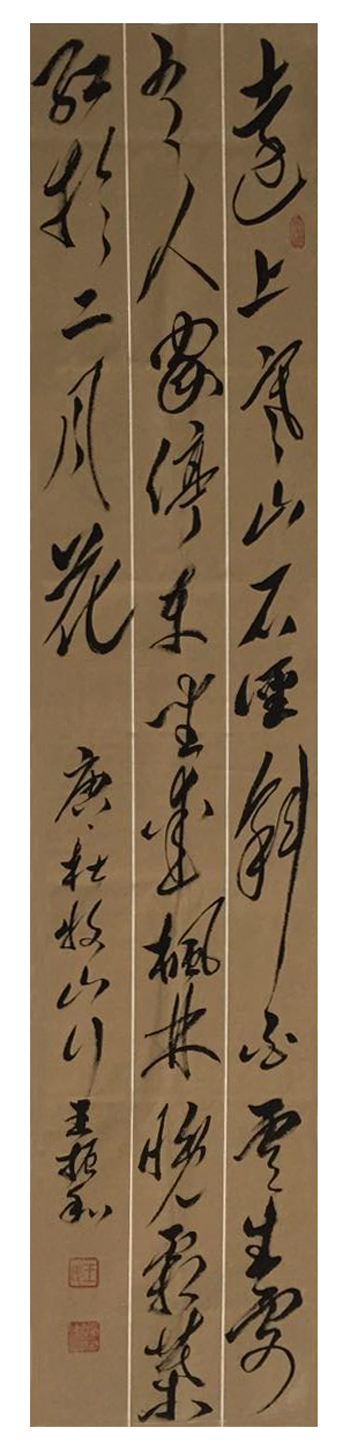 遠上寒山石徑斜白雲生處
有人家停車坐愛楓林晚霜葉
紅於二月花
唐杜牧山行
王振和